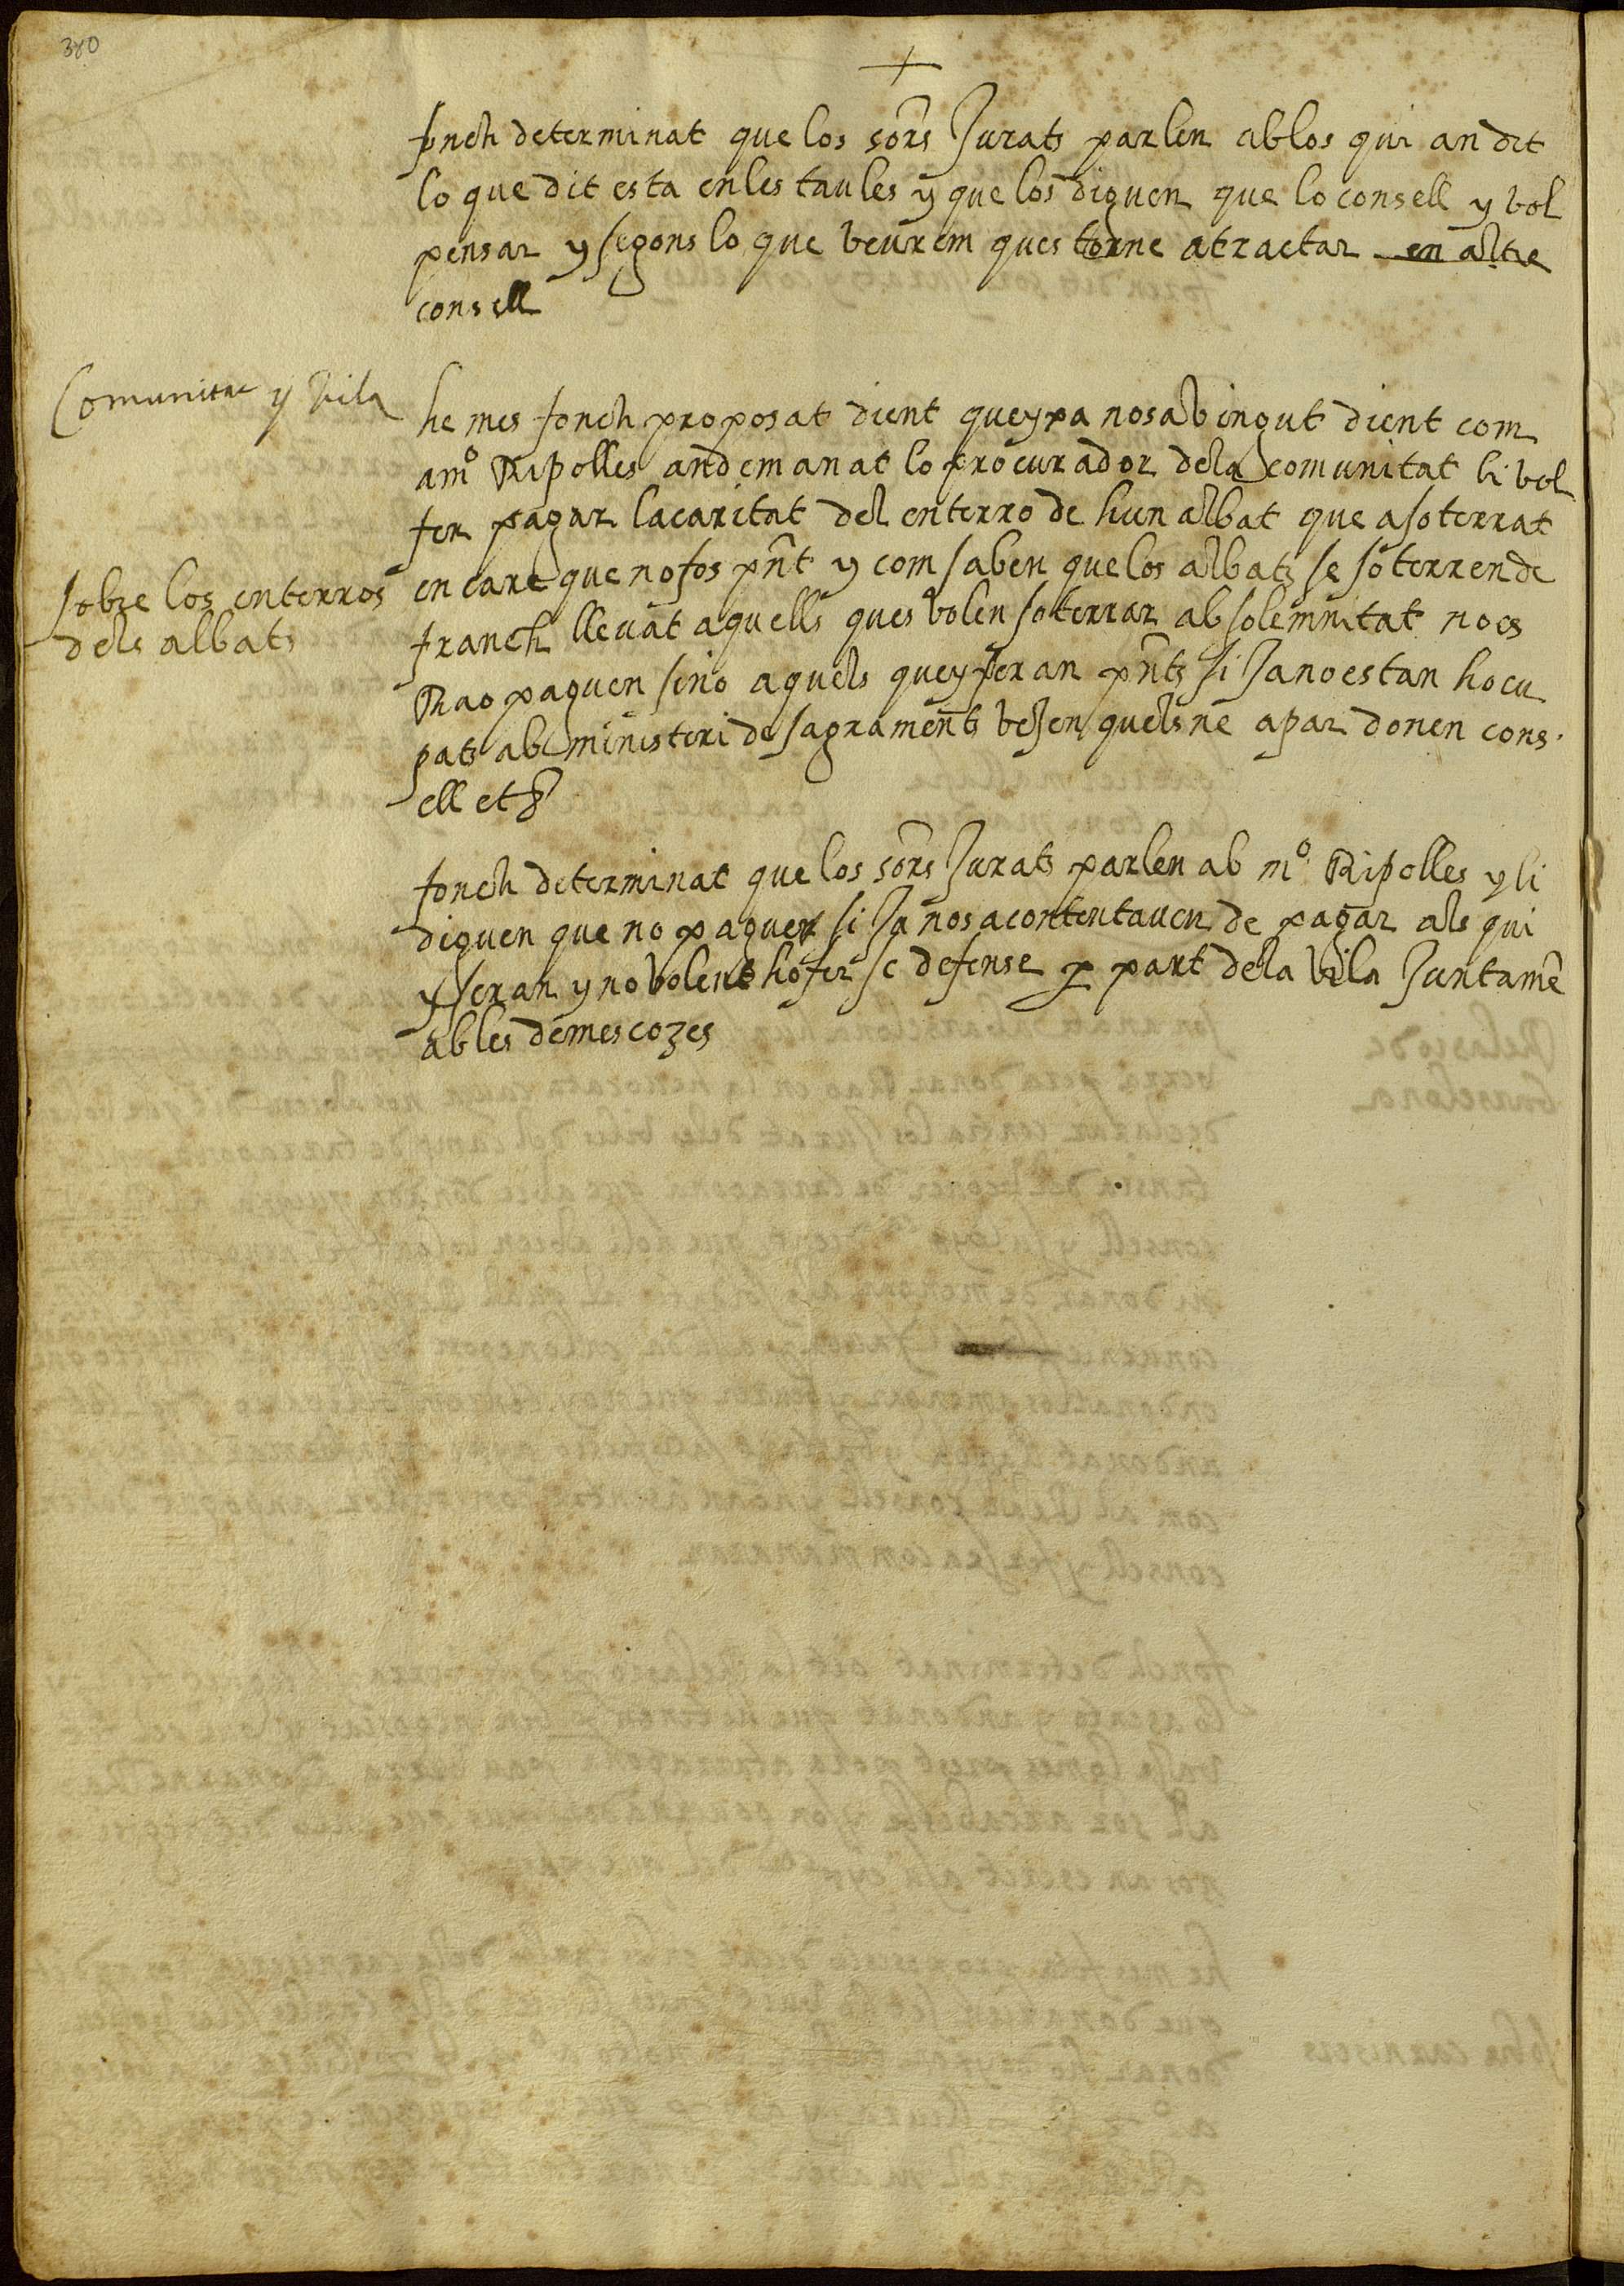 380
fonch determinat que los sõrs Jurats parlen ab los qui an dit
lo que dit esta en les taules y que los diguen que lo consell y vol
pensar y segons lo que veurem ques torne a tractar en altre
consell
Comunitat y Vila
he mes fonch proposat dient que ypa nosabingut dient com
a mº Ripolles an demanat lo procurador dela comunitat li vol
fer pagar la caritat del enterro de hun albat que a soterrat
en care que no fos pñt y com saben que los albats se soterren de
sobre los enterros
dels albats
franch llevat aquells ques volen soterrar ab solemnitat no es
Rao paguen sino aquels que y seran pñts si Ja no estan hocu
pats ab ministeri de sagraments vesen quels ne apar donen cons
ell etª
fonch determinat que los sõrs Jurats parlen ab mº Ripolles y li
diguen que no paguer si Ja nos acontentaven de pagar als qui
y seran y no volent ho fer se defense p part dela vila Juntamẽ
ab les demes cozes